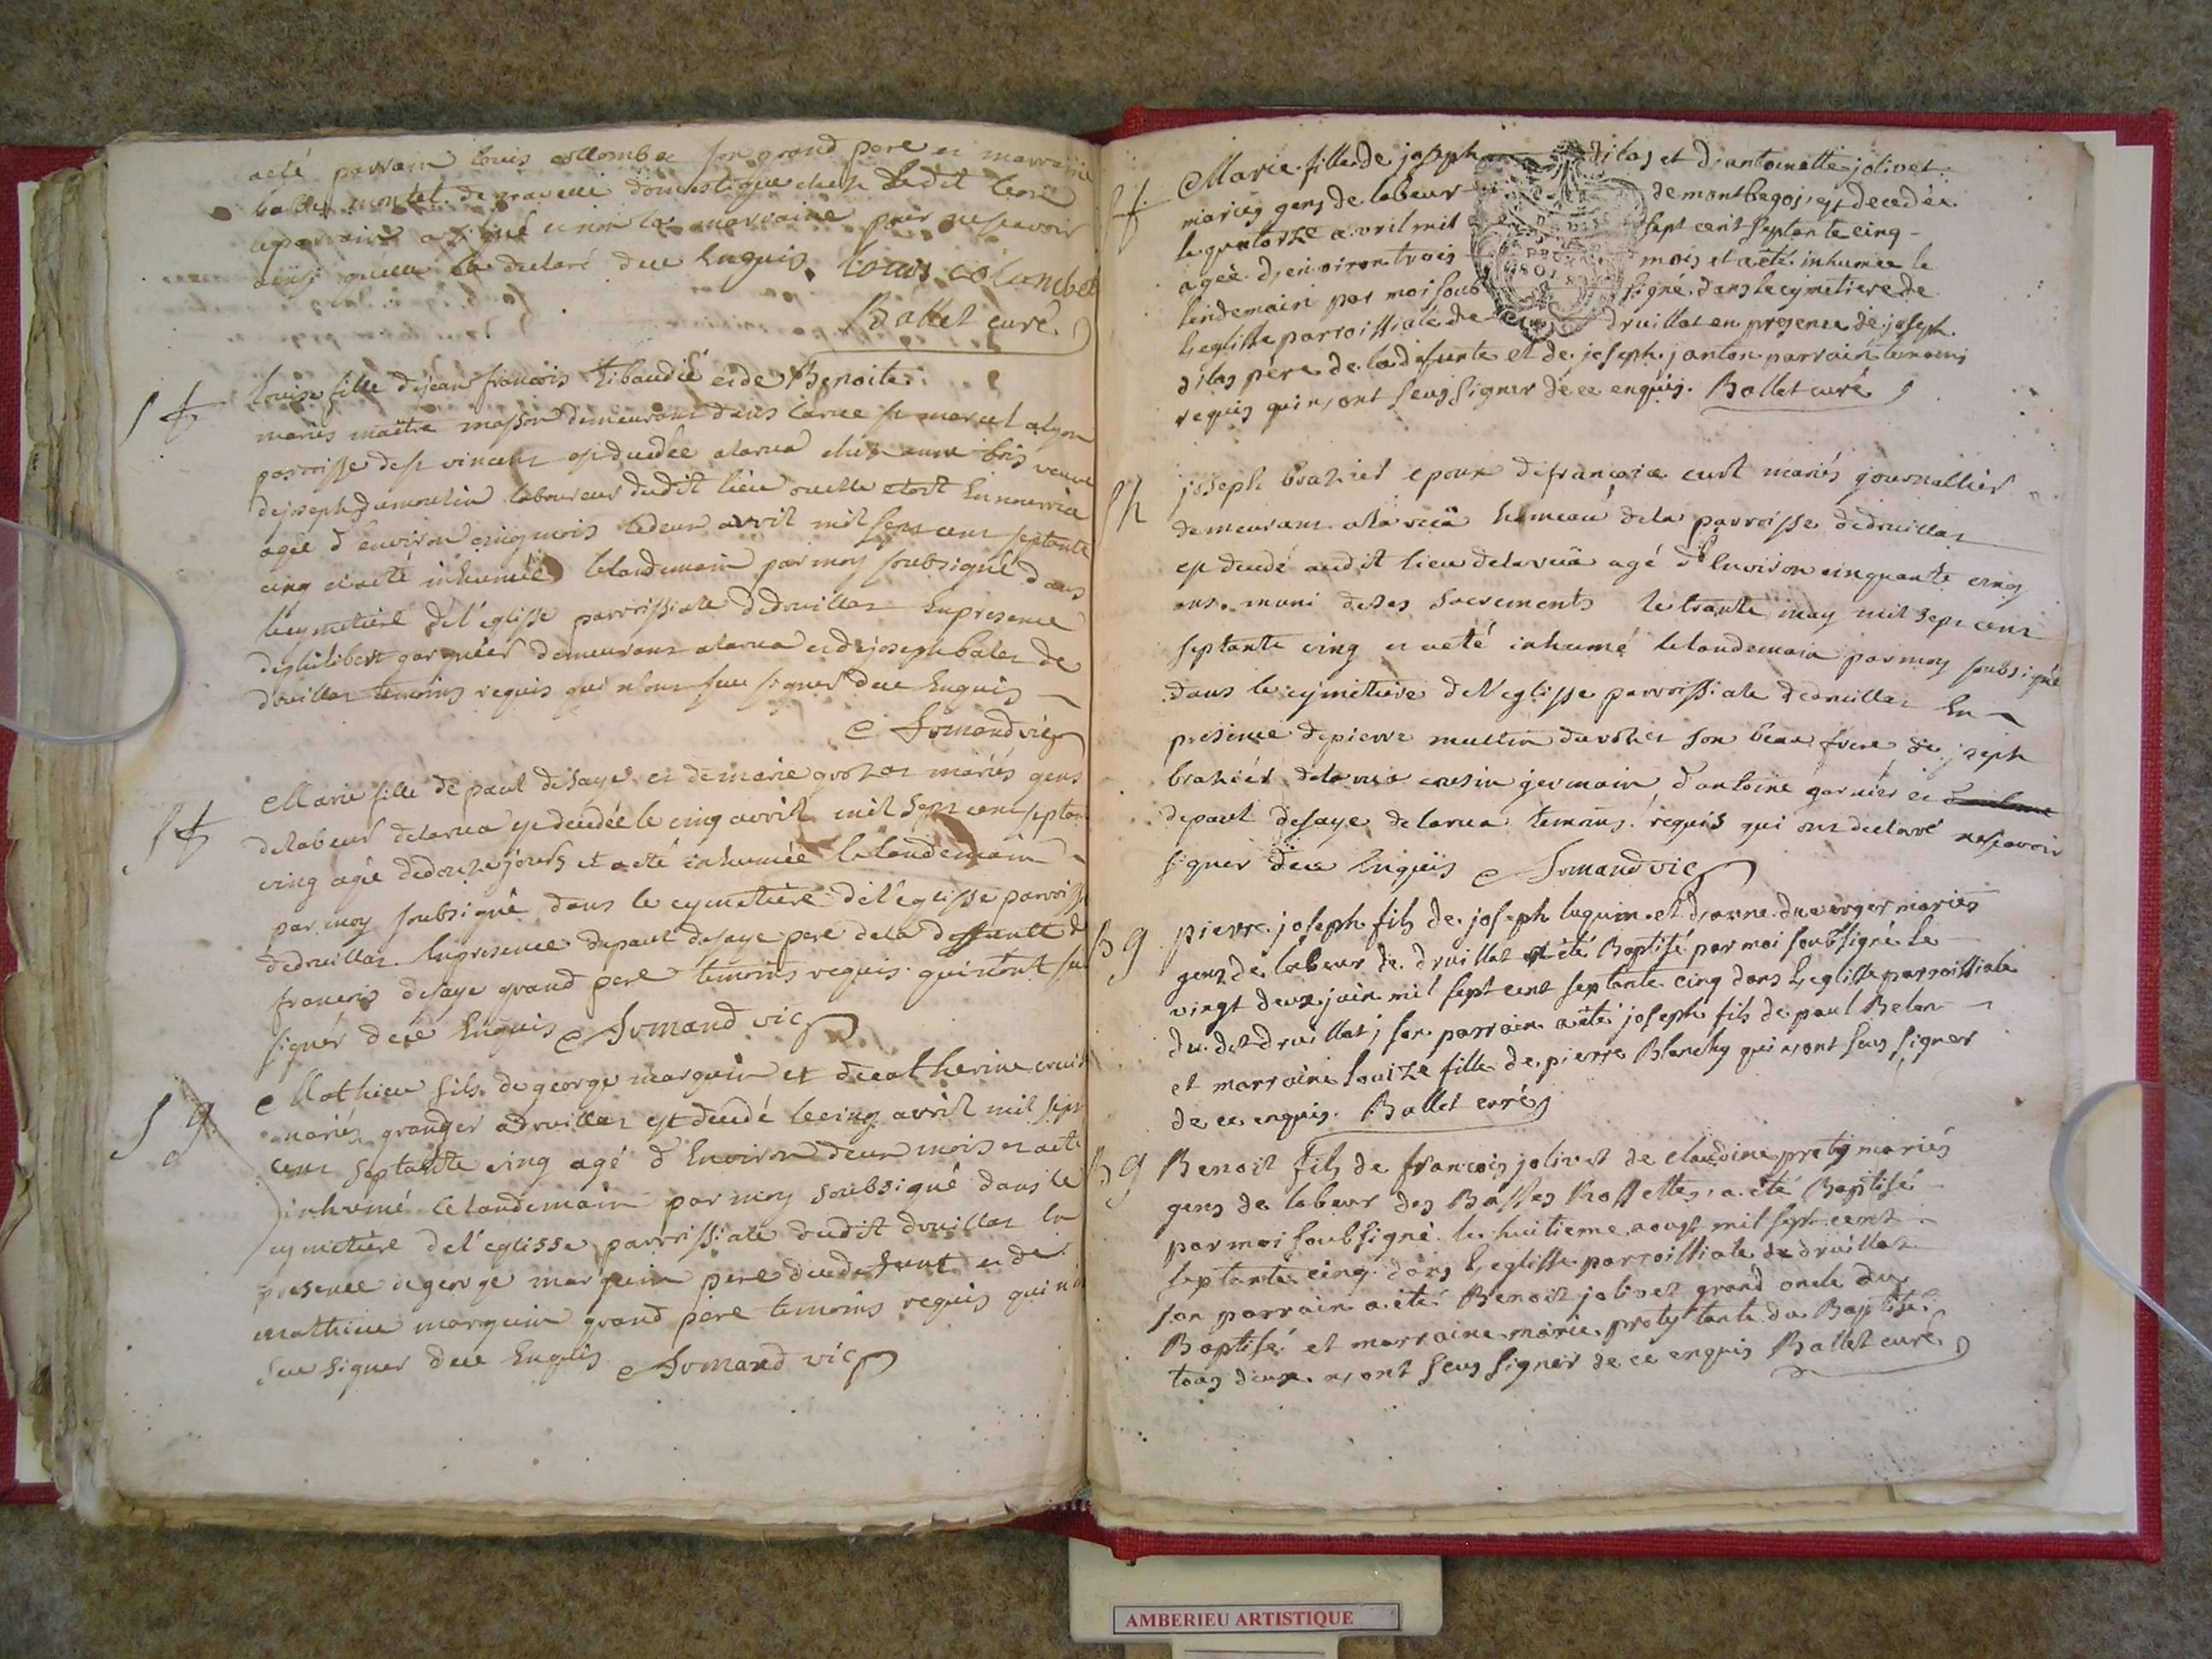 aeté parrain louis collombet son grand pere et marraine
montel de domestique chez ledit
le parrain a signé et non la marraine pour ne scavoir
ainsi quelle la declaré de ce Enquis. louis colombet
Ballet curé
S f
louise fille de jean francois Tibaudié et de Benoite
mariés maitre masson demeurant dans la rue st marcel a lyon
parroisse de st vincent est decedée a larua chez anne bris veuve
de joseph dumoulin laboureur dudit lieu ou elle etoit En nourrice
agée d'environ cinq mois le deux avvril mil sept cent septante
cinq et aeté inhumée lelandemain par moy soubsigné dans
le cymetiere de l'eglisse parroissiale de druillat En presence
de philibert garnier demeurant a larua et de joseph balet de
druillat temoins requis qui n'ont sceu signer de ce Enquis
Armand vic
S f
Marie fille de paul desaye et de marie grozat mariés gens
de labeur de larua est decedée le cinq avvril mil sept cent septante
cinq agée de douze jours et a eté inhumée lelandemain
par moy soubsigné dans le cymetiere de l'eglisse parroiss
de druillat En presence de paul desaye pere de la deffunte &
francois desaye grand pere temoins requis qui n'ont su
signer de ce Enquis Armand vic
S g
Mathieu fils de george marguin et de catherine
mariés granger a druillat est decedé le cinq avvril mil sept
cent septante cinq agé d'Environ deux mois et aeté
inhumé lelandemain par moy soubsigné dans le
cymetiere de l'eglisse parroissiale dudit druillat En
presence de george marguin pere du defunt et de
mathieu marguin grand pere temoins requis qui n'on
sceu signer de ce Enquis Armand vic
S f
Marie fille de joseph dilas et d'antoinette jolivet
mariés gens de labeur de montbegos, est decedée
le quatorze avril mil sept cent septante cinq
agée d'environ trois mois et a eté inhumée le
lendemain par moi soub signé dans le cymetiere de
l'eglisse parroissiale de druillat en presence de joseph
dilas père de la defunte et de joseph janton parrain temoins
requis qui n'ont seus signer de ce enquis. Ballet curé
S h
joseph brazier epoux de francoise curt mariés journallier
demeurant a la ruä hameau de la parroisse de druillat
est decedé audit lieu de la ruä agé d'Environ cinquante cinq
ans. muni de ses sacrements le trante may mil sept cent
septante cinq et aeté inhumé lelandemain par moy soubsigné
dans le cymetiere de l'eglisse parroissiale de druillat En
presence de pierre son beau frere de joseph
brazier de la rua cousin germain d'antoine garnier et
de paul desaye de larua temoins requis qui ont declaré ne scavoir
signer de ce Enquis Armand vic
B g
pierre joseph fils de joseph luguin et d'anne duverger mariés
gens de labeur de druillat a eté Baptisé par moi soubsigné le
vingt deux juin mil sept cent septante cinq dans l'eglisse parroissiale
du dit druillat; son parrain a eté joseph fils de paul Belon
et marraine louize fille de pierre Blanchy qui n'ont seus signer
de ce enquis. Ballet curé
B g
Benoit fils de francois jolivet de claudine praty mariés
gens de labeur des Basses Rossettes, a eté Baptisé
par moi soubsigné le huitieme aoust mil sept cent
septante cinq dans l'eglisse parroissiale de druillat
son parrain a eté Benoit jolivet grand oncle du
Baptisé et marraine marie praty tante du Baptisé
tous deux n'ont seus signer de ce enquis Ballet curé
AMBERIEU ARTISTIQUE